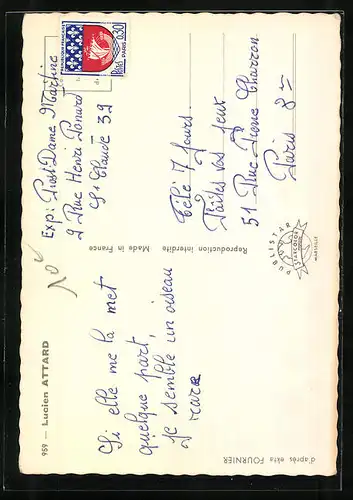 959 — Lucien ATTARD
Si elle me la met
quelque part,
je semble un oiseau
rare
Exp: Prost-Dame Martine
2 Rue Henri Ponard
St Claude 39
REPUBLIQUE FRANÇAISE
0,30
PARIS
Postes
Reproduction interdite
Made in France
Télé 7 Jours.
Faites vos jeux
51 Rue Pierre Charron
Paris 8e
PUBLISTAR
STARCOLOR
MARSEILLE
d'après ekta FOURNIER